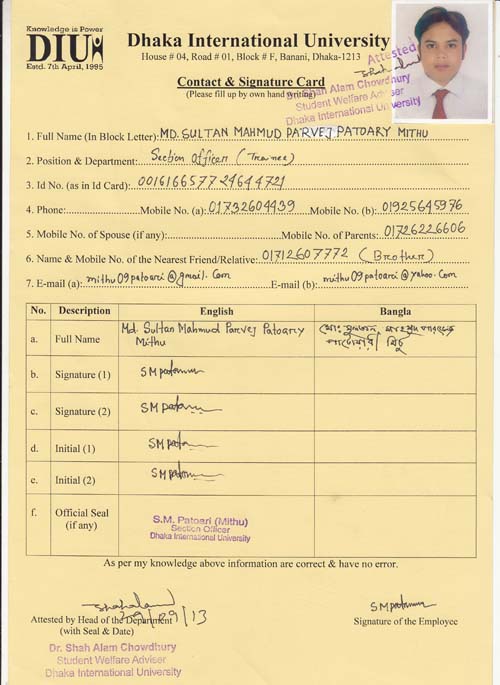 Knowledge is Power
DIU
Estd. 7th April, 1995
Dhaka International University
House # 04, Road # 01, Block # F, Banani, Dhaka-1213
Contact & Signature Card
(Please fill up by own hand writing)
Attested
Dr. Shah Alam Chowdhury
Student Welfare Adviser
Dhaka International University
1. Full Name (In Block Letter): MD. SULTAN MAHMUD PARVEJ PATOARY MITHU
2. Position & Department: Section Officer (Trainee)
3. Id No. (as in Id Card): 0016166577 24644721
4. Phone: Mobile No. (a): 01732604439 Mobile No. (b): 01925645976
5. Mobile No. of Spouse (if any): Mobile No. of Parents: 01726226606
6. Name & Mobile No. of the Nearest Friend/Relative: 01712607772 (Brother)
7. E-mail (a): mithu09patoari@gmail.com E-mail (b): mithu09patoari@yahoo.com
No. Description English Bangla
a. Full Name Md. Sultan Mahmud Parvej Patoary Mithu মোঃ সুলতান মাহমুদ পারভেজ পাটোয়ারী মিঠু
b. Signature (1) SMpatoary
c. Signature (2) SMpatoary
d. Initial (1) SMpatoary
e. Initial (2) SMpatoary
f. Official Seal (if any) S.M. Patoari (Mithu)
Section Officer
Dhaka International University
As per my knowledge above information are correct & have no error.
29/09/13
Attested by Head of the Department
(with Seal & Date)
SMpatoary
Signature of the Employee
Dr. Shah Alam Chowdhury
Student Welfare Adviser
Dhaka International University